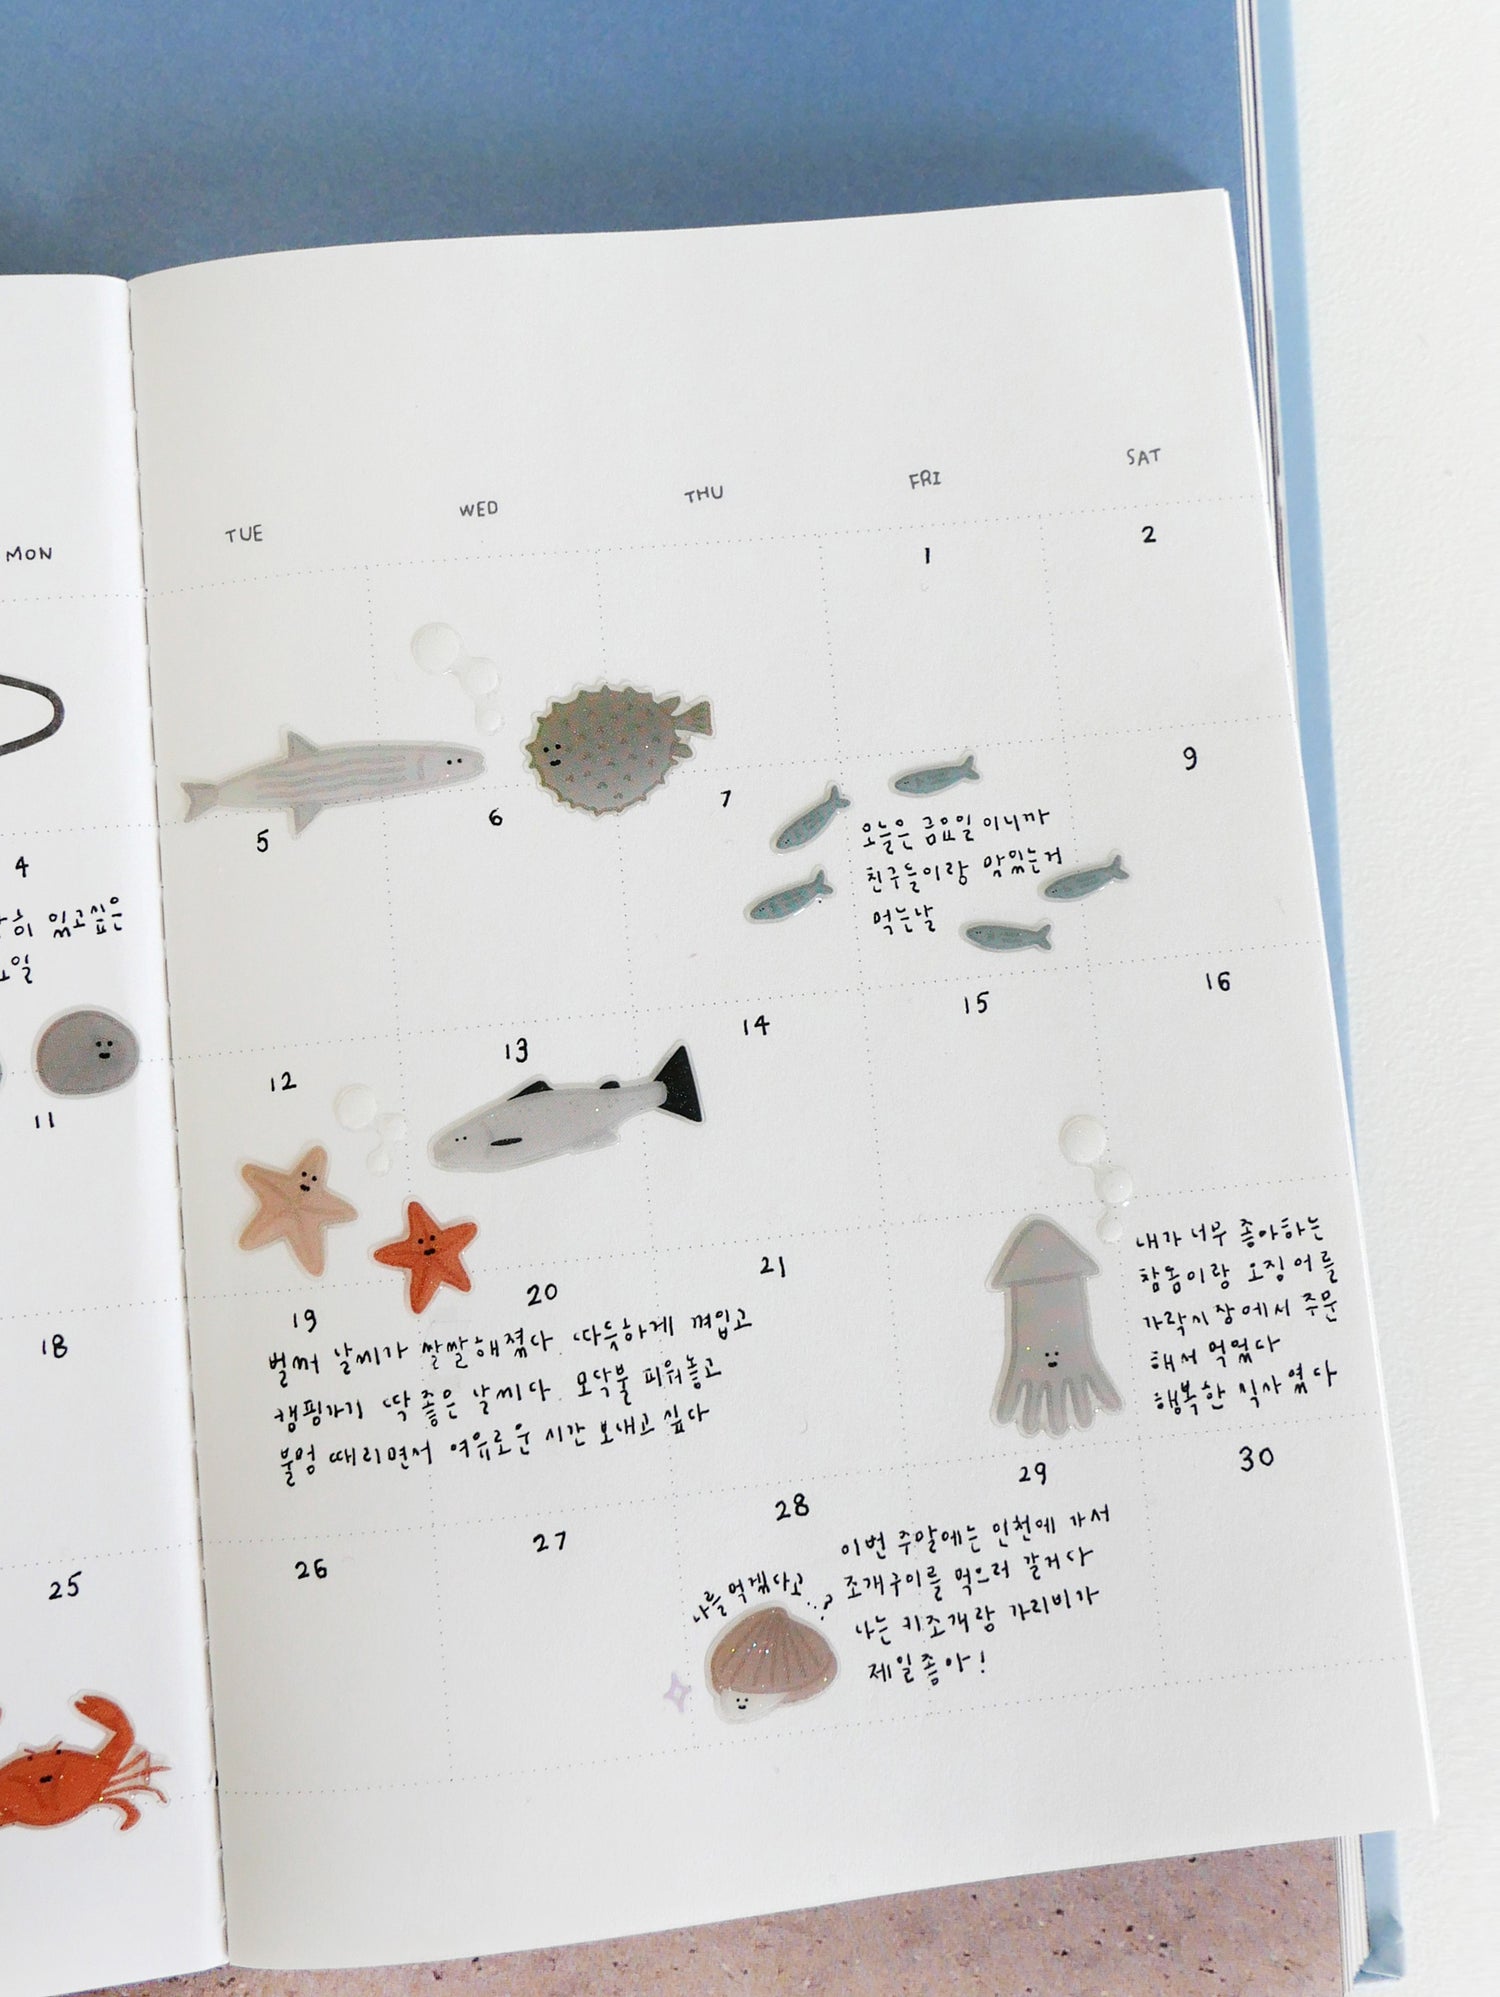 MON TUE WED THU FRI SAT
1 2
4 5 6 7 9
있고싶은
오늘은 금요일이니까
친구들이랑 맛있는거
먹는날
11 12 13 14 15 16
18 19 20 21
벌써 날씨가 쌀쌀해졌다. 따듯하게 껴입고
캠핑가기 딱 좋은 날씨다. 모닥불 피워놓고
불멍 때리면서 여유로운 시간 보내고 싶다
내가 너무 좋아하는
참돔이랑 오징어를
가락시장에서 주문
해서 먹었다
행복한 식사였다
25 26 27 28 29 30
나를 먹겠다고...?
이번 주말에는 인천에 가서
조개구이를 먹으러 갈거다
나는 키조개랑 가리비가
제일좋아!